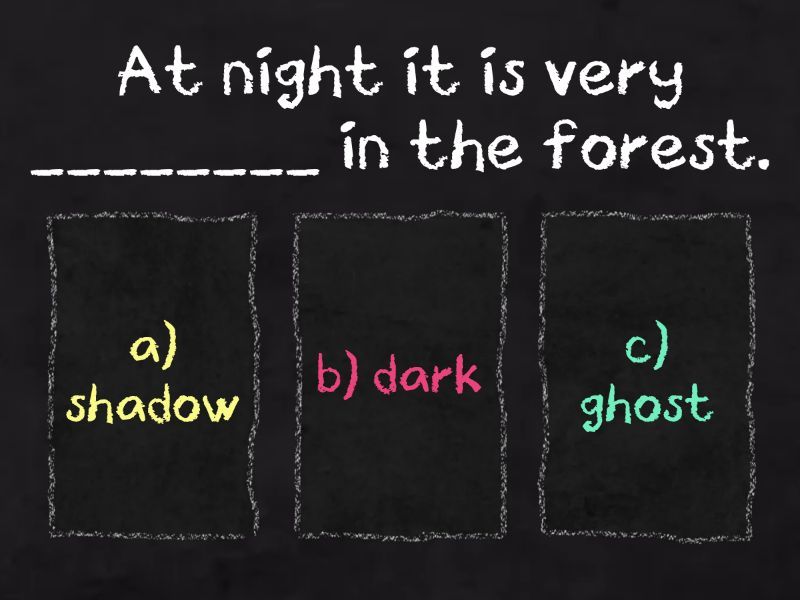 At night it is very
________ in the forest.
a)
shadow
b) dark
c)
ghost